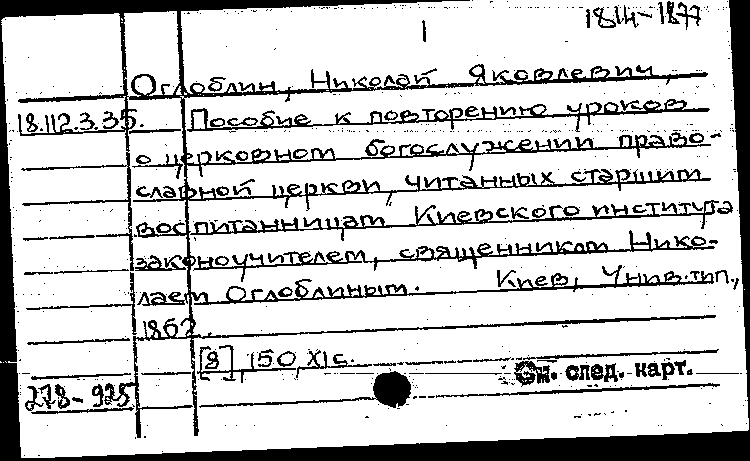 1814-1877
1
Оглоблин, Николай Яковлевич,
18.112.3.35. Пособие к повторению уроков
о церковном богослужении право-
славной церкви, читанных старшим
воспитанницам Киевского института
законоучителем, священником Нико-
лаем Оглоблиным. Киев, Унив. тип.,
1862.
[8], 150, XI с.
См. след. карт.
278-925